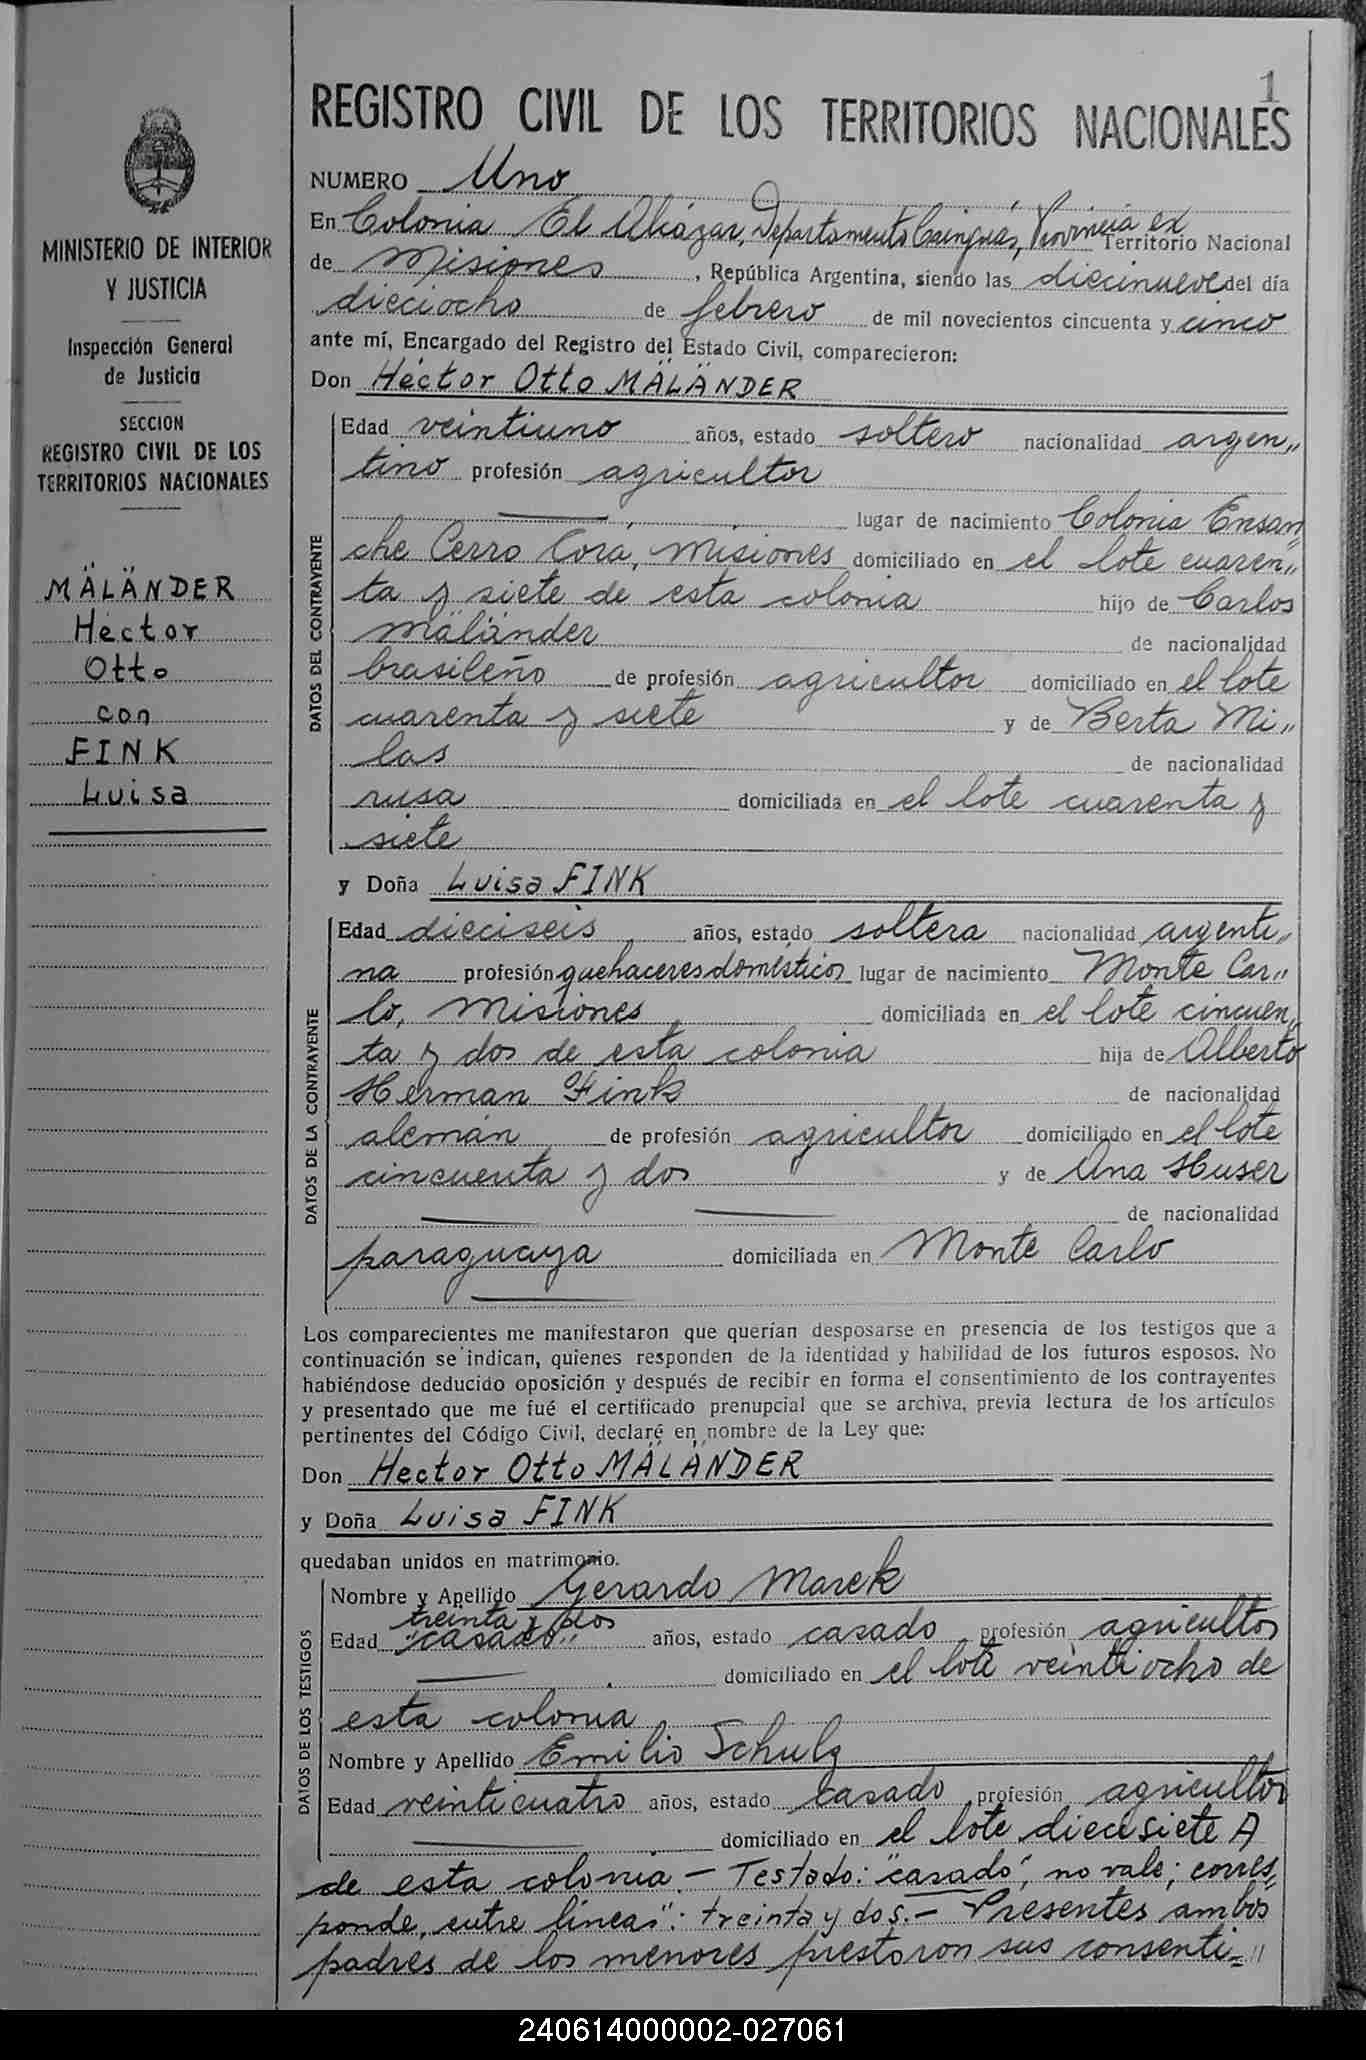 1
REGISTRO CIVIL DE LOS TERRITORIOS NACIONALES
NUMERO Uno
En Colonia El Alcázar, Departamento Cainguás, Provincia ex Territorio Nacional
de Misiones, República Argentina, siendo las diecinueve del día
dieciocho de febrero de mil novecientos cincuenta y cinco
ante mí, Encargado del Registro del Estado Civil, comparecieron:
Don Héctor Otto MÄLÄNDER
DATOS DEL CONTRAYENTE
Edad veintiuno años, estado soltero nacionalidad argen„
tino profesión agricultor
lugar de nacimiento Colonia Ensan„
che Cerro Corá, Misiones domiciliado en el lote cuaren„
ta y siete de esta colonia hijo de Carlos
Mäländer de nacionalidad
brasileño de profesión agricultor domiciliado en el lote
cuarenta y siete y de Berta Mi„
las de nacionalidad
rusa domiciliada en el lote cuarenta y
siete
y Doña Luisa FINK
DATOS DE LA CONTRAYENTE
Edad dieciseis años, estado soltera nacionalidad argenti„
na profesión quehaceres domésticos lugar de nacimiento Monte Car„
lo, Misiones domiciliada en el lote cincuen„
ta y dos de esta colonia hija de Alberto
Herman Fink de nacionalidad
alemán de profesión agricultor domiciliado en el lote
cincuenta y dos y de Ana Huser
de nacionalidad
paraguaya domiciliada en Monte Carlo
Los comparecientes me manifestaron que querían desposarse en presencia de los testigos que a
continuación se indican, quienes responden de la identidad y habilidad de los futuros esposos. No
habiéndose deducido oposición y después de recibir en forma el consentimiento de los contrayentes
y presentado que me fué el certificado prenupcial que se archiva, previa lectura de los artículos
pertinentes del Código Civil, declaré en nombre de la Ley que:
Don Hector Otto MÄLÄNDER
y Doña Luisa FINK
quedaban unidos en matrimonio.
DATOS DE LOS TESTIGOS
Nombre y Apellido Gerardo Marek
treinta y dos
Edad "casado" años, estado casado profesión agricultor
domiciliado en el lote veintiocho de
esta colonia
Nombre y Apellido Emilio Schulz
Edad veinticuatro años, estado casado profesión agricultor
domiciliado en el lote diecisiete A
de esta colonia.- Testado: "casado", no vale; corres„
ponde, entre líneas": treinta y dos.- Presentes ambos
padres de los menores prestaron sus consenti="
MINISTERIO DE INTERIOR
Y JUSTICIA
Inspección General
de Justicia
SECCION
REGISTRO CIVIL DE LOS
TERRITORIOS NACIONALES
MÄLÄNDER
Héctor
Otto
con
FINK
Luisa
240614000002-027061